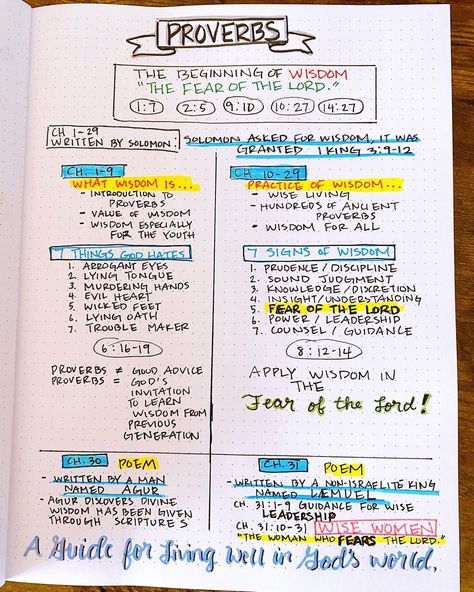 PROVERBS
THE BEGINNING OF WISDOM
"THE FEAR OF THE LORD."
1:7 2:5 9:10 10:27 14:27
CH 1-29
WRITTEN BY SOLOMON:
SOLOMON ASKED FOR WISDOM, IT WAS
GRANTED 1 KING 3:9-12
CH. 1-9
WHAT WISDOM IS...
- INTRODUCTION TO
PROVERBS
- VALUE OF WISDOM
- WISDOM ESPECIALLY
FOR THE YOUTH
7 THINGS GOD HATES
1. ARROGANT EYES
2. LYING TONGUE
3. MURDERING HANDS
4. EVIL HEART
5. WICKED FEET
6. LYING OATH
7. TROUBLE MAKER
6:16-19
PROVERBS ≠ GOOD ADVICE
PROVERBS = GOD'S
INVITATION
TO LEARN
WISDOM FROM
PREVIOUS
GENERATION
CH. 10-29
PRACTICE OF WISDOM...
- WISE LIVING
- HUNDREDS OF ANCIENT
PROVERBS
- WISDOM FOR ALL
7 SIGNS OF WISDOM
1. PRUDENCE/DISCIPLINE
2. SOUND JUDGMENT
3. KNOWLEDGE/DISCRETION
4. INSIGHT/UNDERSTANDING
5. FEAR OF THE LORD
6. POWER / LEADERSHIP
7. COUNSEL / GUIDANCE
8:12-14
APPLY WISDOM IN
THE
Fear of the Lord!
CH. 30 POEM
- WRITTEN BY A MAN
NAMED AGUR
- AGUR DISCOVERS DIVINE
WISDOM HAS BEEN GIVEN
THROUGH SCRIPTURES
CH. 31 POEM
- WRITTEN BY A NON-ISRAELITE KING
NAMED LEMUEL
CH. 31:1-9 GUIDANCE FOR WISE
LEADERSHIP
CH. 31:10-31 WISE WOMEN
"THE WOMAN WHO FEARS THE LORD."
A Guide for Living Well in God's world.